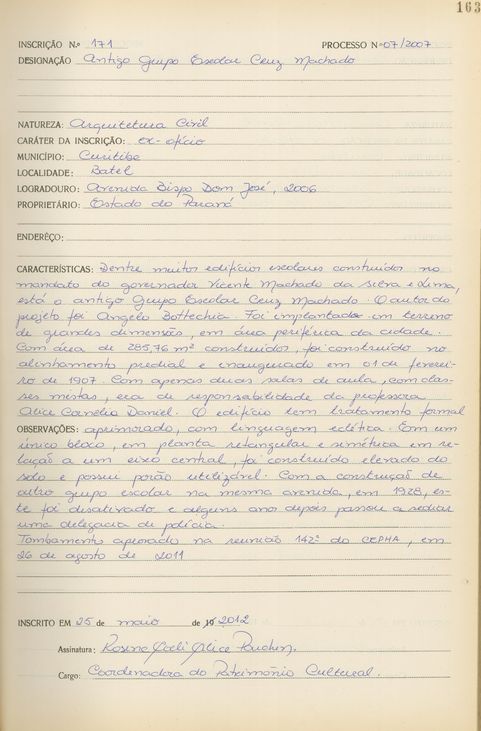 163
INSCRIÇÃO N.º 171 PROCESSO Nº 07/2007
DESIGNAÇÃO Antigo Grupo Escolar Cruz Machado
NATUREZA: Arquitetura Civil
CARÁTER DA INSCRIÇÃO: ex-ofício
MUNICÍPIO: Curitiba
LOCALIDADE: Batel
LOGRADOURO: Avenida Bispo Dom José, 2006
PROPRIETÁRIO: Estado do Paraná
ENDERÊÇO:
CARACTERÍSTICAS: Dentre muitos edifícios escolares construídos no
mandato do governador Vicente Machado da Silva e Lima,
está o antigo Grupo Escolar Cruz Machado. O autor do
projeto foi Angelo Bottechia. Foi implantado em terreno
de grandes dimensões, em área periférica da cidade.
Com área de 285,76 m² construídos, foi construído no
alinhamento predial e inaugurado em 01 de feverei-
ro de 1907. Com apenas duas salas de aula, com clas-
ses mistas, era de responsabilidade da professora
Alice Cornélia Daniel. O edifício tem tratamento formal
OBSERVAÇÕES: aprimorado, com linguagem eclética. Com um
único bloco, em planta retangular e simétrica em re-
lação a um eixo central, foi construído elevado do
solo e possui porão utilizável. Com a construção de
outro grupo escolar na mesma avenida, em 1928, es-
te foi desativado e alguns anos depois passou a sediar
uma delegacia de polícia.
Tombamento aprovado na reunião 142ª do CEPHA, em
26 de agosto de 2011
INSCRITO EM 25 de maio de 19 2012
Assinatura: Rosina
Cargo: Coordenadora do Patrimônio Cultural.